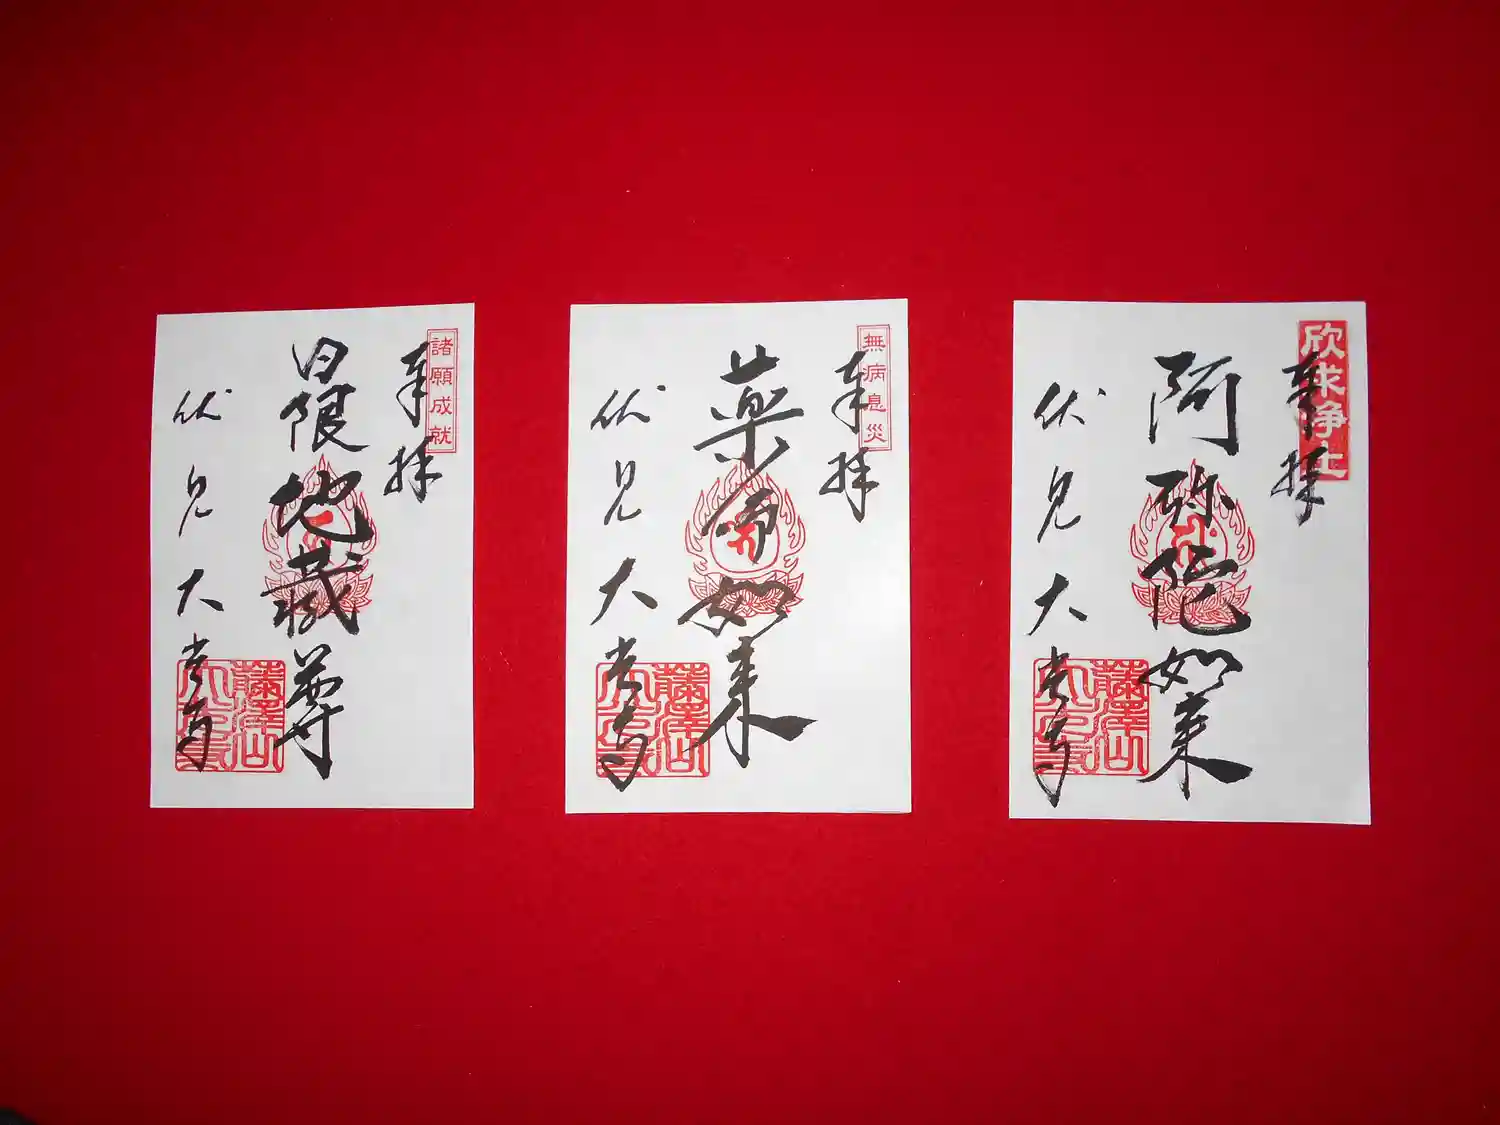 欣求浄土
奉拝
阿弥陀如来
伏見大光寺
藤澤山
大光寺
無病息災
奉拝
薬師如来
伏見大光寺
藤澤山
大光寺
諸願成就
奉拝
日限地蔵尊
伏見大光寺
藤澤山
大光寺